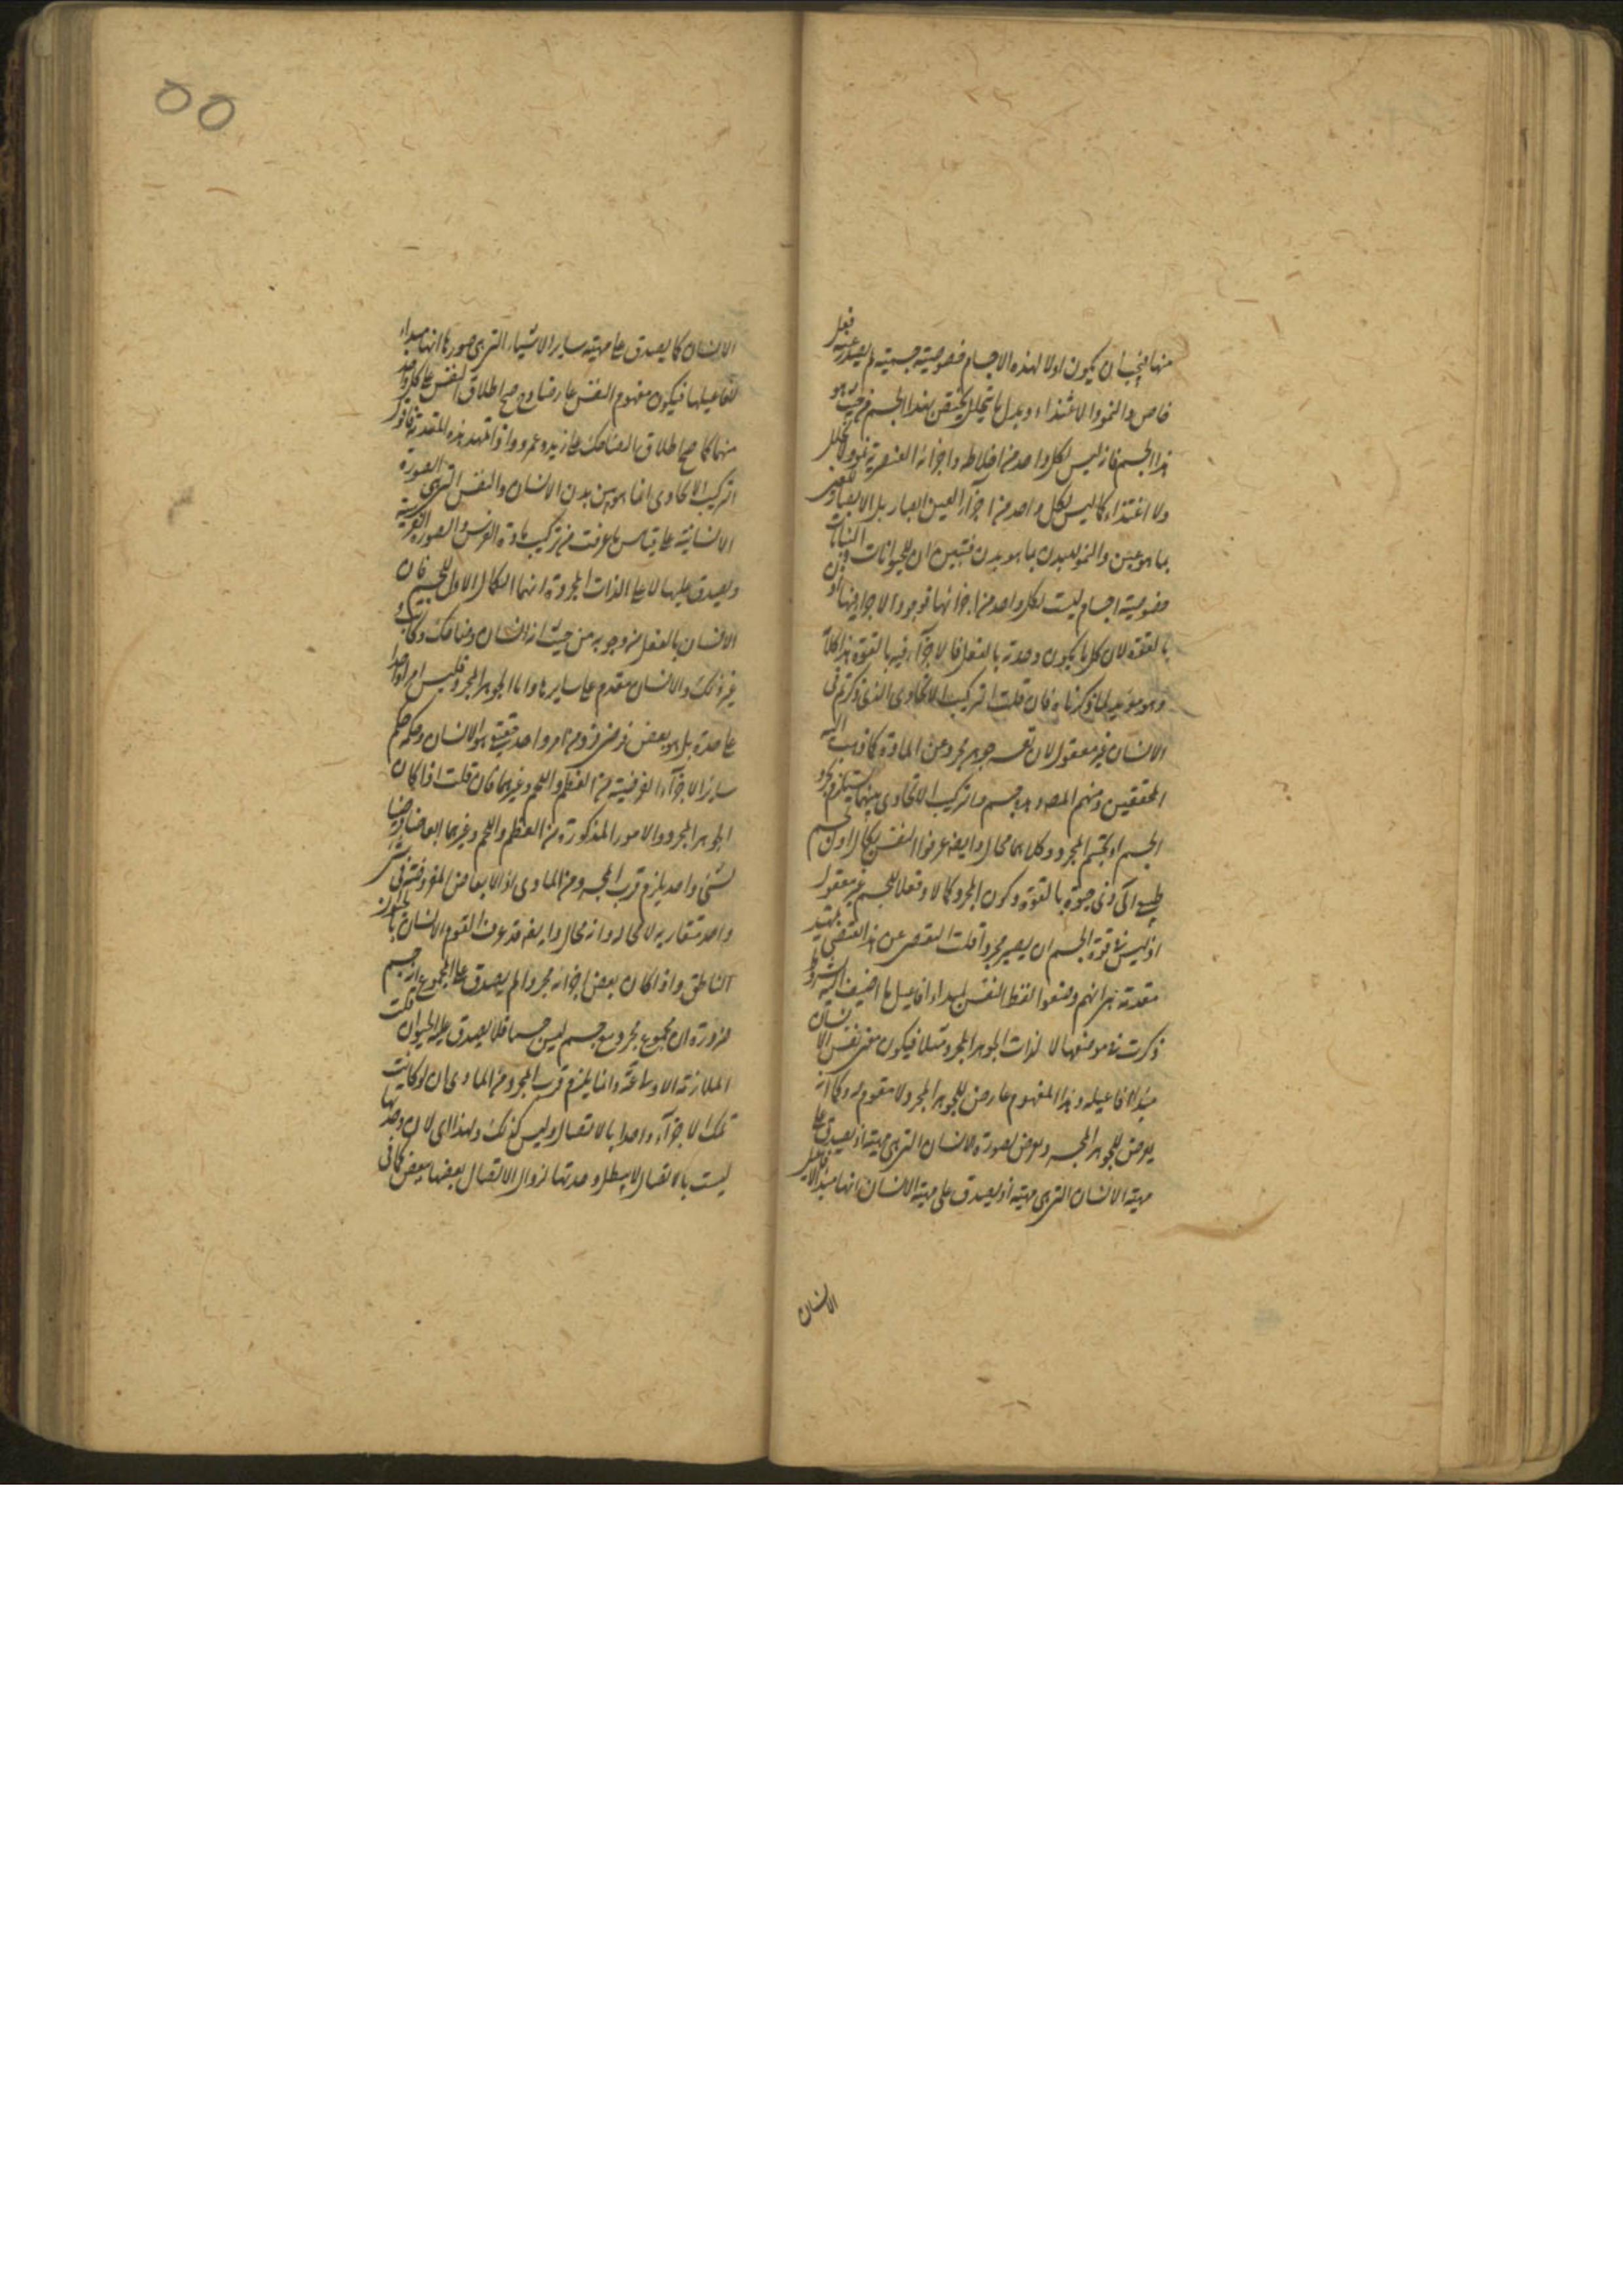 منها فيجب ان يكون اولا لهذه الاجسام خصوصية جسمية ثم يصدر عنه فعل
خاص والنمو والاغتذاء وبدل ما يتحلل يختص بهذا الجسم من حيث هو
هذا الجسم فانه ليس لكل واحد من اخلاطه واجزائه العنصرية نمو ولا تحلل
ولا اغتذاء كما ليس لكل واحد من اجزاء العين ابصار بل الابصار للعين
بما هو عين والنمو للبدن بما هو بدن فتبين ان للحيوانات والنباتات
خصوصية اجسام ليست لكل واحد من اجزائها فوجود الاجزاء فيها
بالقوة لان كل ما يكون وحدته بالفعل فالاجزاء فيه بالقوة هذا كلامه
وهو مؤيد لما ذكرناه فان قلت التركيب الاتحادى الذى ذكرتم فى
الانسان غير معقول لان نفسه جوهر مجرد عن المادة كما ذهب اليه
المحققين ومنهم المصـ وبدنه جسم والتركيب الاتحادى بينهما يستلزم تجرد
الجسم او تجسم المجرد وكلاهما محال وايضا عرفوا النفس بكمال اول لجسم
طبيعى آلى ذى حيوة بالقوة وكون المجرد كمالا وفعلا للجسم غير معقول
اذ ليس فى قوة الجسم ان يصير مجردا قلت التفصى عن هذا يقتضى تمهيد
مقدمة هى انهم وضعوا لفظ النفس لمبداء افاعيل ما اضيف اليه بشروط
ذكرت فى موضعها لا لذات الجوهر المجرد مثلا فيكون معنى نفس الانسان
مبدأ افاعيله وهذا المفهوم عارض للجوهر المجرد لا مقوم له وكما انه
يعرض للجوهر المجرد يعرض لصورة الانسان التى هى مهيته اذ يصدق على
مهية الانسان التى هى مهيته اذ يصدق على مهية الانسان انها مبدأ لافاعيل
الانسان
٥٥
الانسان كما يصدق على مهية ساير الاشياء التى هى صورها انها مبداء
لافاعيلها فيكون مفهوم النفس عارضا وح صح اطلاق النفس على كل واحد
منهما كما صح اطلاق الضاحك على زيد وعمرو واذا تمهد هذه المقدمة فاقول
التركيب الاتحادى انما هو بين بدن الانسان والنفس التى هى الصورة
الانسانية على قياس ما عرفت من تركيب مادة الفرس والصورة الفرسية
ويصدق عليها لا على الذات المجردة انها الكمال الاول للجسم فان
الانسان بالفعل من وجوه من حيث انه انسان وضاحك وكاتب و
غير ذلك والانسان مقدم على سايرها واما الجوهر المجرد فليس امرا واحدا
على حدة بل هو بعض فرضى من امر واحد حقيقة هو الانسان وحكمه حكم
ساير الاجزاء الفرضية من العظم واللحم وغيرهما فان قلت اذا كان
الجوهر المجرد والامور المذكورة من العظم واللحم وغيرهما ابعاضا فرضية
لشئ واحد يلزم قرب المجرد من المادى اذ الابعاض المفروضة فى شئ
واحد متقاربة لا محالة وانه محال وايضا قد عرف القوم الانسان بالحيوان
الناطق واذا كان بعض اجزائه مجردا لم يصدق على المجموع انه جسم
ضرورة ان مجموع مجرد مع جسم ليس جسما فلا يصدق عليه الحيوان قلت
الملازمة الاولى ممنوعة وانما يلزم قرب المجرد من المادى ان لو كانت
تلك الاجزاء واحدا بالاتصال وليس كذلك ولهذا اى لان وحدتها
ليست بالاتصال لا يبطل وحدتها لزوال الاتصال بعضها ببعض كما فى